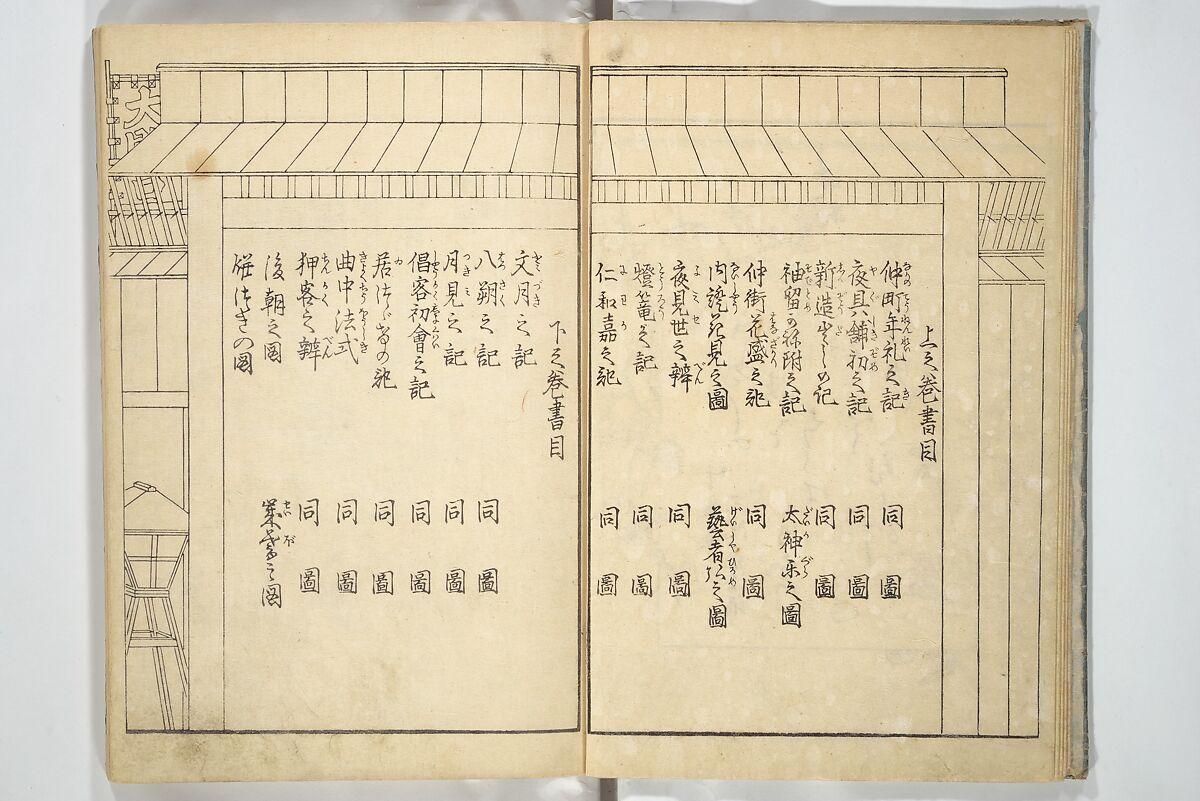 上之巻書目
仲町年礼之記 同 圖
夜具舗初之記 同 圖
新造出しの記 同 圖
袖留 祢附之記 太神楽之圖
仲街花盛之記 同 圖
内證花見之圖 藝者弘之圖
夜見世之辨 同 圖
燈篭之記 同 圖
仁和嘉之記 同 圖
下之巻書目
文月之記
八朔之記 同 圖
月見之記 同 圖
倡客初會之記 同 圖
居つゞけの記 同 圖
曲中法式 同 圖
狎客之辨 同 圖
後朝之圖
餅つきの圖
大